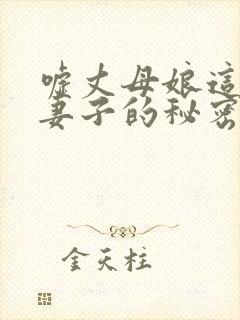 嘘丈母娘這
妻子的秘密
金天柱